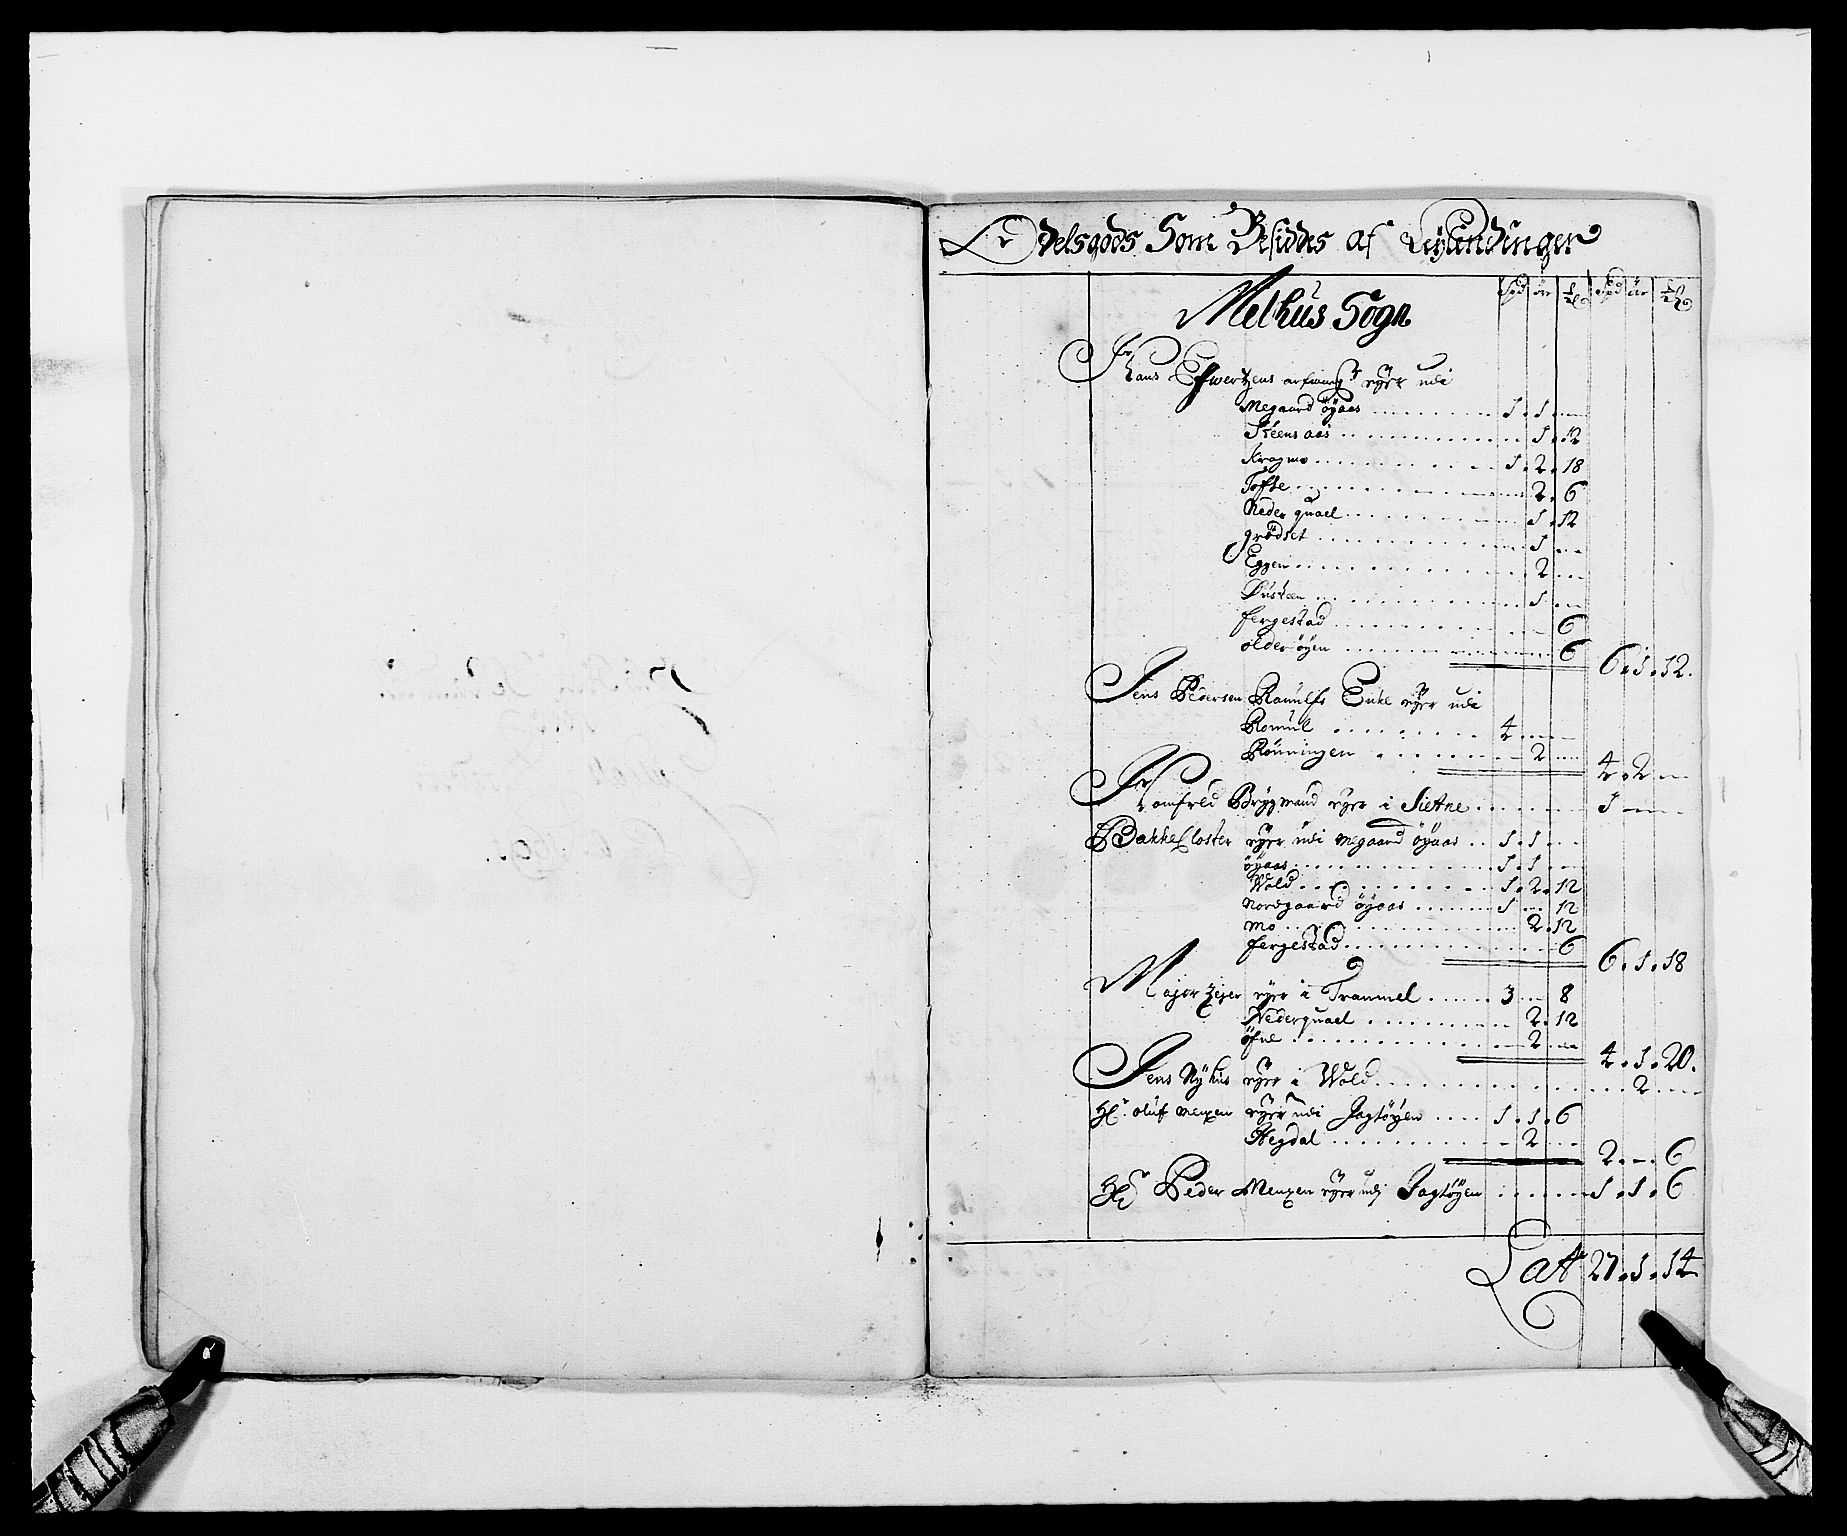 Odelsgods Som Besiddes af Leylendinger
Spd ör Spd ör
Melhus Sogn
Hr Hans Schwertzens arfwing eyer udi
Megaard öyaas 1 . 1 . —
Steens aas 1 . 12
Kragmo 1 . 2 . 18
Tofte 2 . 6
Neder quael 1 . 12
grödset 1 . —
Eggen 2 . —
Dusteen 1 . —
fergestad 6
older öyen 6 6 . 1 . 12.
Jens Pedersen Ramulfs Enke eyer udi
Romul 4 — —
Rönningen 2 — 4 . 2 —
Hr Tomfeld Brygmand eyer i Sietne 1 — —
Bakke Closter eyer udi megaard öyaas 1 . 1 . —
öyaas 1 . 1 . —
Wold 1 . 2 . 12
Nordgaard öyaas 1 — 12
mo 2 . 12
fergestad 6 6 . 1 . 18
Major eyer i Tranmel 3 — 8
Nederquael 2 . 12
öfne 2 — 4 . 1 . 20.
Jens Nyhus eyer i Wold 2 —
Hr. oluf menxen eyer udi Jagtöyen 1 . 1 . 6
Hegdal 2 — 2 . — . 6
Hr Peder Menxen eyer udj Jagtöyen 1 . 1 . 6
Latr 27 . 1 . 14